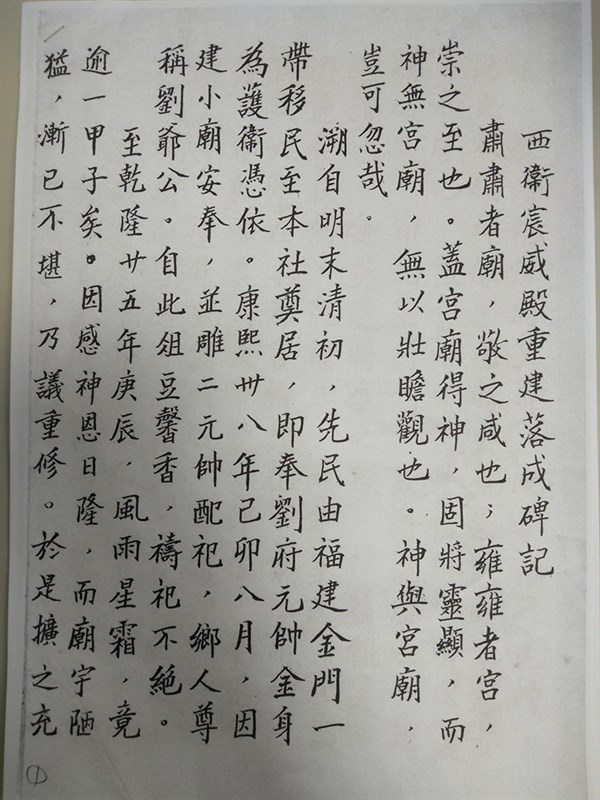 西衛宸威殿重建落成碑記
肅肅者廟，敬之咸也；雍雍者宮，
崇之至也。蓋宮廟得神，固將靈顯，而
神無宮廟，無以壯瞻觀也。神與宮廟，
豈可忽哉。
溯自明末清初，先民由福建金門一
帶移民至本社奠居，即奉劉府元帥金身
為護衛憑依。康熙卅八年己卯八月，因
建小廟安奉，並雕二元帥配祀，鄉人尊
稱劉爺公。自此俎豆馨香，禱祀不絕。
至乾隆廿五年庚辰，風雨星霜，竟
逾一甲子矣。因感神恩日隆，而廟宇陋
猛，漸已不堪，乃議重修。於是擴之充
①